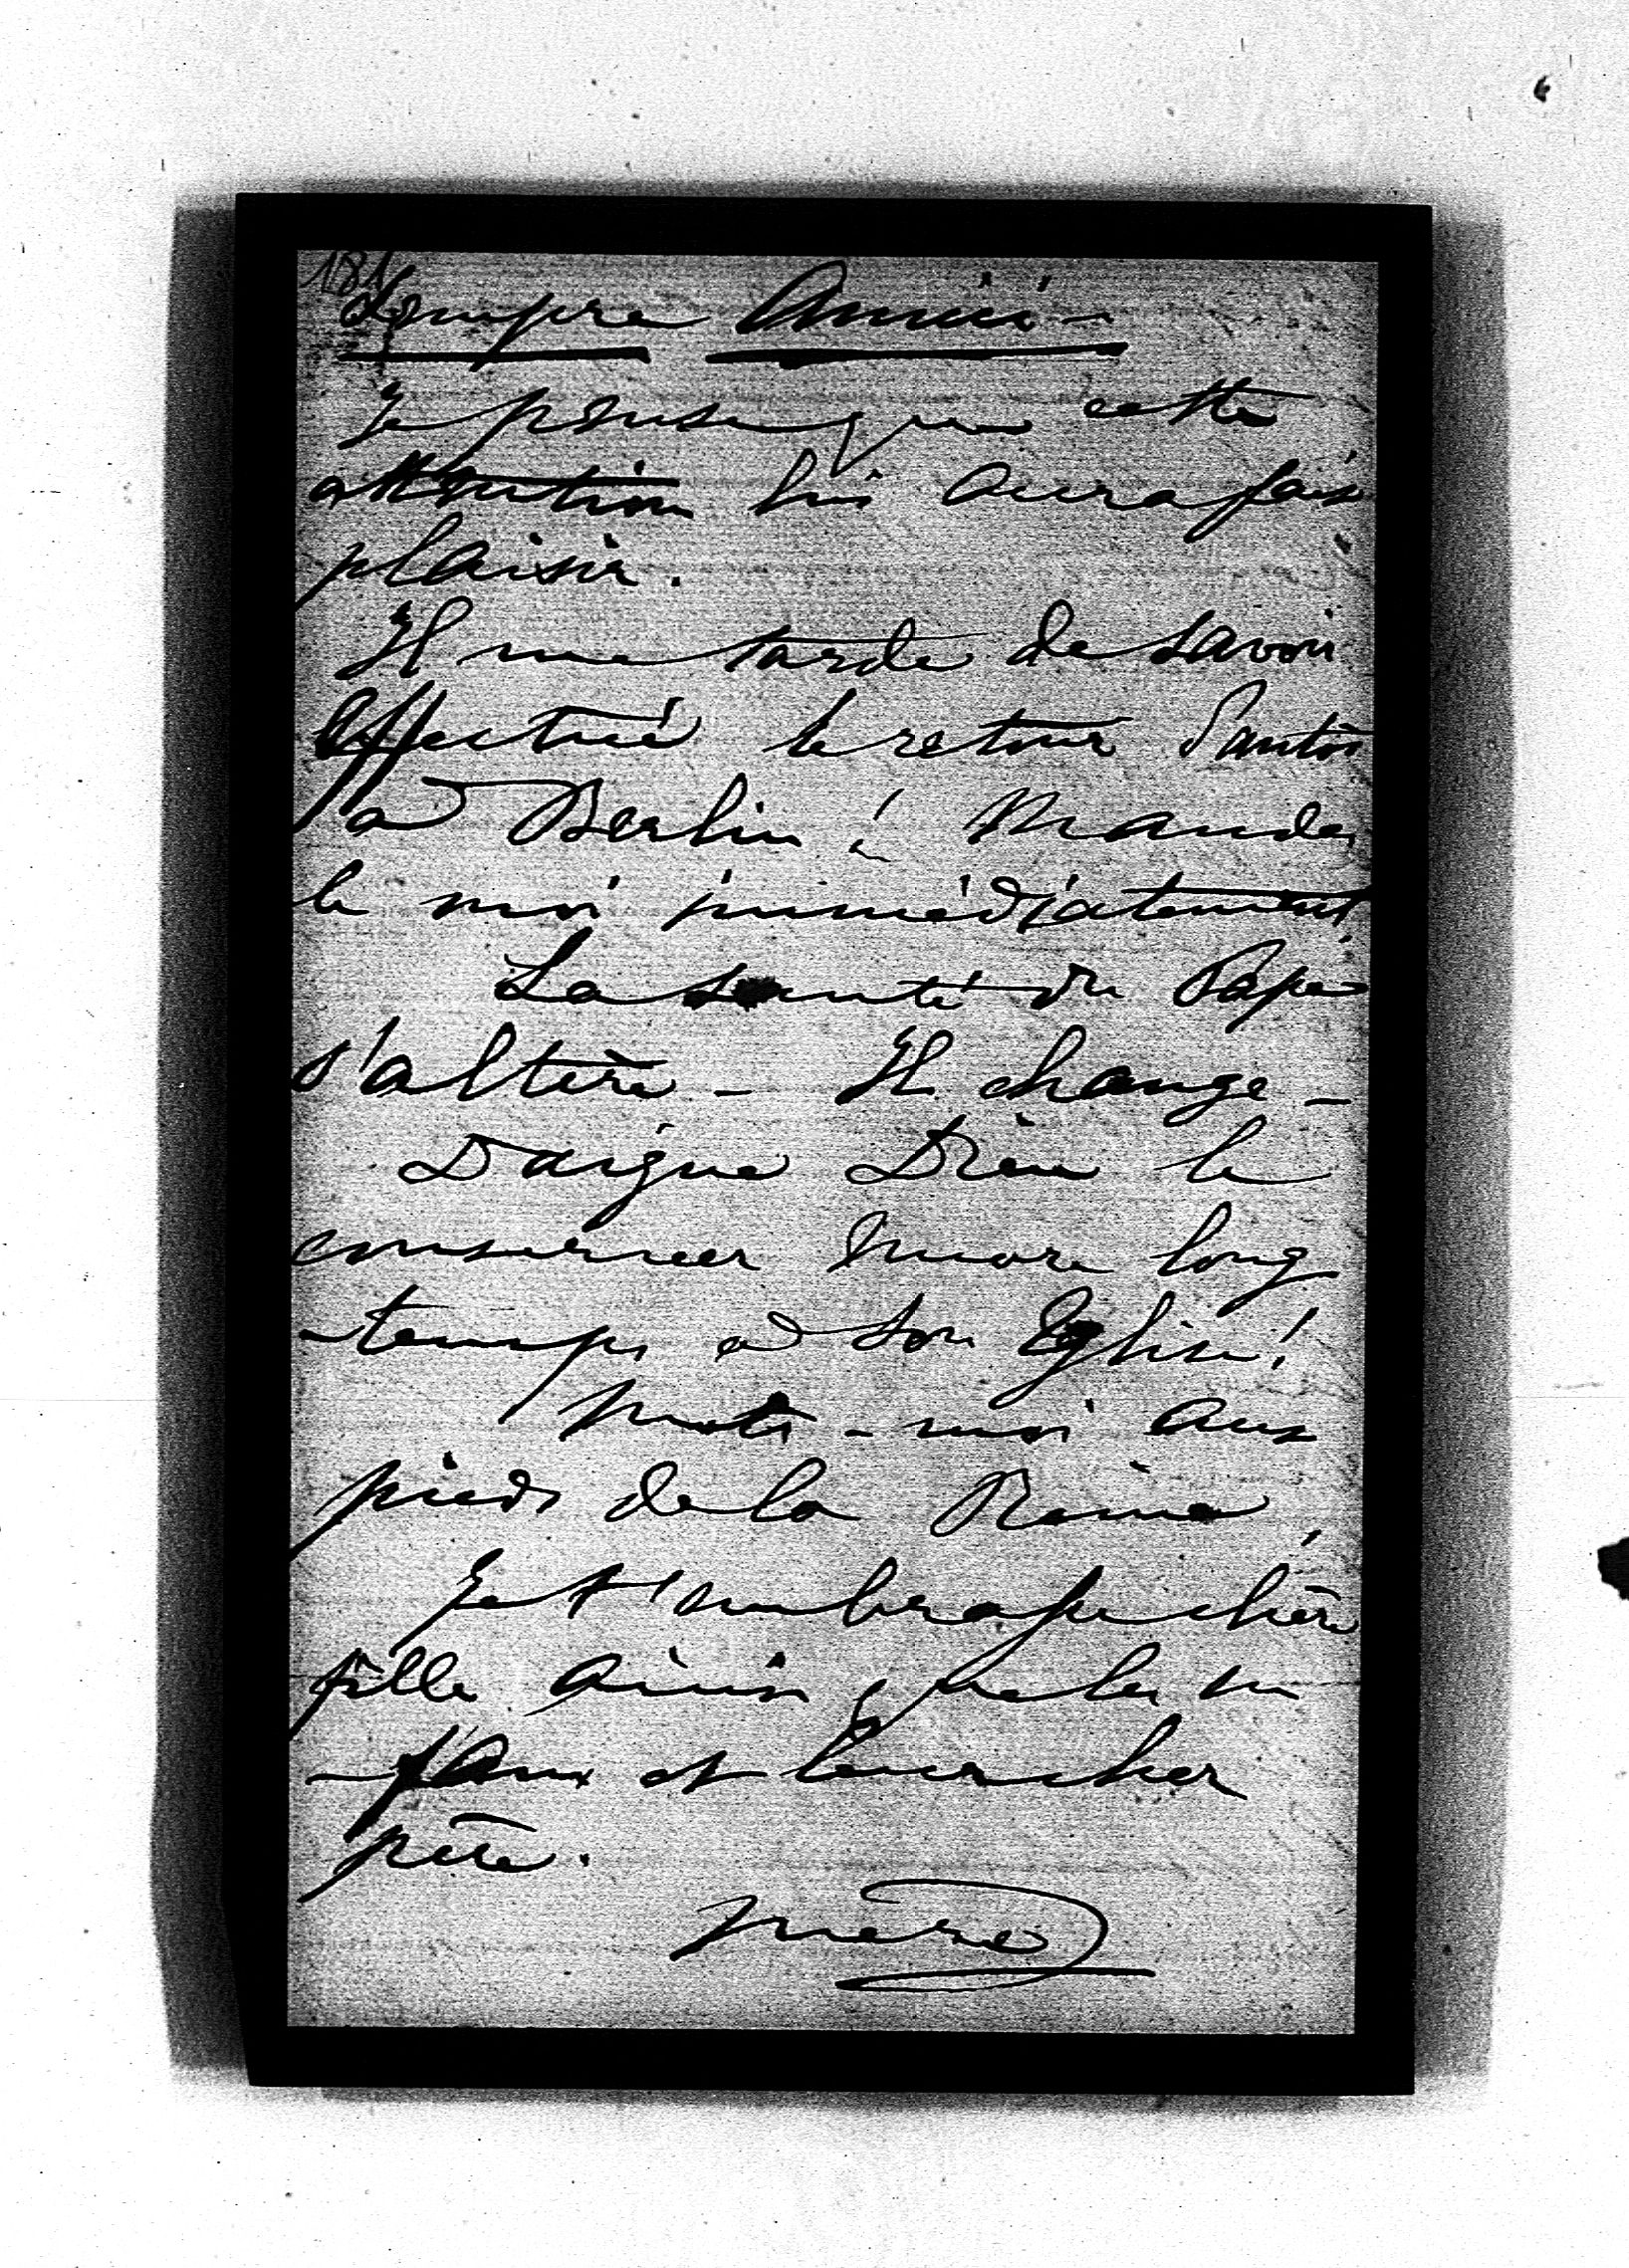 181
Sempre Amici -
Je pense que cette
attention lui aura fait
plaisir.
Il me tarde de savoir
effectué le retour
à Berlin ! Mande
le moi immédiatement
La santé du Pape
s'altère - Il change -
Daigne Dieu le
conserver encore long
-temps à son Eglise !
Mets-moi aux
pieds de la Reine,
Je t'embrasse chère
fille ainsi que les en
-fans et leur cher
père.
mère